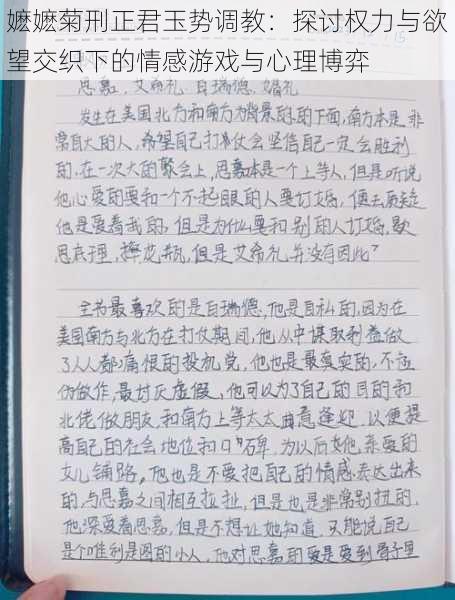 嬷嬷菊刑正君玉势调教：探讨权力与欲
望交织下的情感游戏与心理博弈
思嘉，艾希礼，白瑞德，婚礼
发生在美国北方和南方为背景的的下面，南方本是非
常自大的人，希望自己打仗会坚信自己一定会胜利
的，在一次大的聚会上，思嘉本是一个上等人，但是听说
他心爱的要和一个不起眼的人要订婚，便去质疑
他是爱着我的，但是为什么要和别的人订婚，歇
思底理，摔花瓶，但是艾希礼并没有因此？
全书最喜欢的是白瑞德，他是自私的，因为在
美国南方与北方在打仗期间，他从中谋取利益做
了人人都痛恨的投机党，他也是最真实的，不应
伪做作，最讨厌虚假，他可以为了自己的目的和
北佬做朋友和南方上等太太曲意逢迎，以便提
高自己的社会地位和口碑，为以后如他亲爱的
女儿铺路，他也是不爱把自己的情感表达出来
的，与思嘉之间相互拉扯，但是也是非常别扭的，
他深爱着思嘉，但是不想让她知道，又能说自己
是个唯利是图的小人，他对思嘉的爱是爱到骨子里